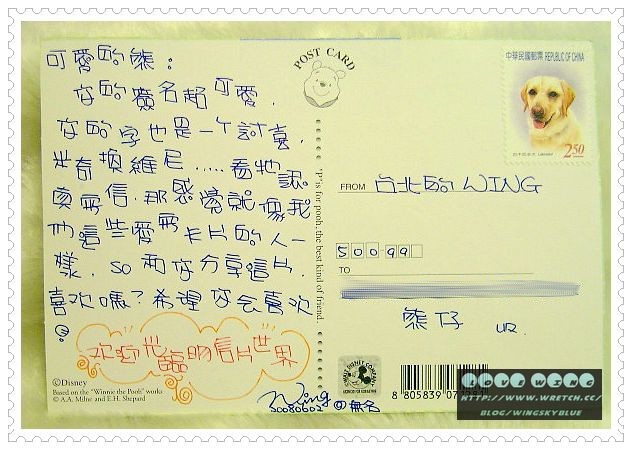 可愛的熊：
你的癈名超可愛，
你的字也是一个討喜，
米奇撞維尼.....看牠認
真寫信，那感覺就像我
們這些愛寫卡片的人一
樣，so 兩你分享這片，
喜欢嗎？希望你会喜欢
欢迎光臨明信片世界
©Disney
Based on the "Winnie the Pooh" works
© A.A. Milne and E.H. Shepard
POST CARD
"P" is for pooh, the best kind of friend.
中華民國郵票 REPUBLIC OF CHINA
Labrador
2.50
FROM 台北的WING
500-99
TO
熊仔 ur.
Wing
20080602 @無名
8 805839 07
LOVE WING
HTTP://WWW.WRETCH.CC/
BLOG/WINGSKYBLUE